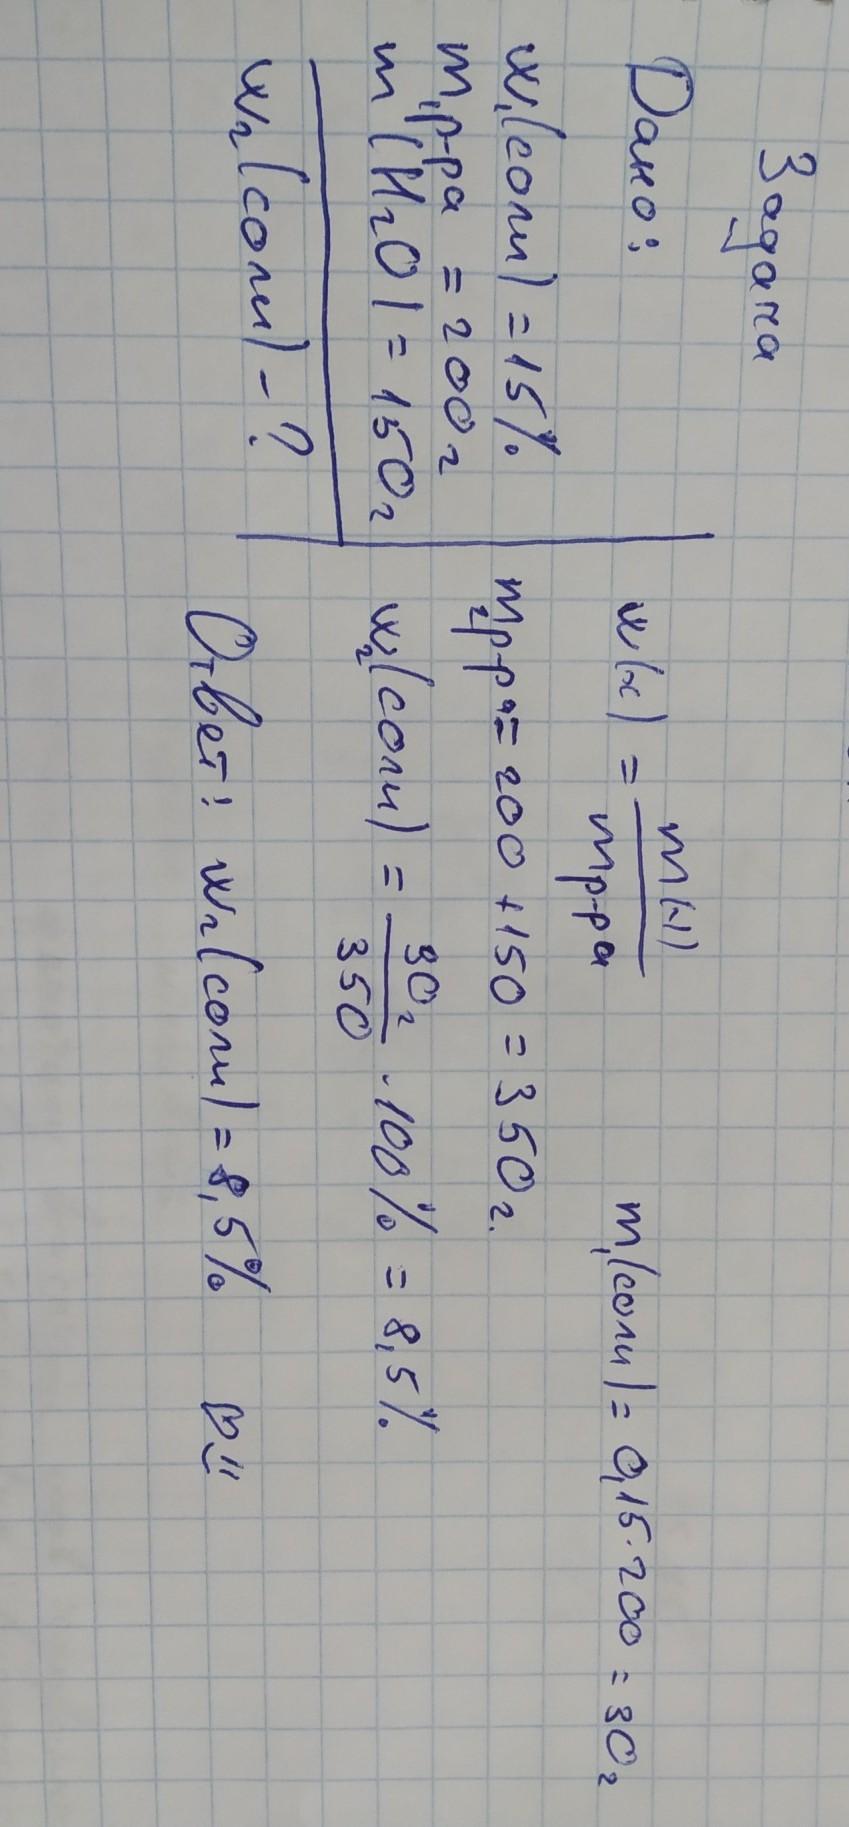 Задача
Дано:
w₁(соли) = 15%
m₁р-ра = 200г
m(H₂O) = 150г
w₂(соли) - ?
w(x) = m(x) / mр-ра
m₁(соли) = 0,15·200 = 30г
m₂р-ра = 200 + 150 = 350г.
w₂(соли) = 30г / 350 · 100% = 8,5%
Ответ: w₂(соли) = 8,5%